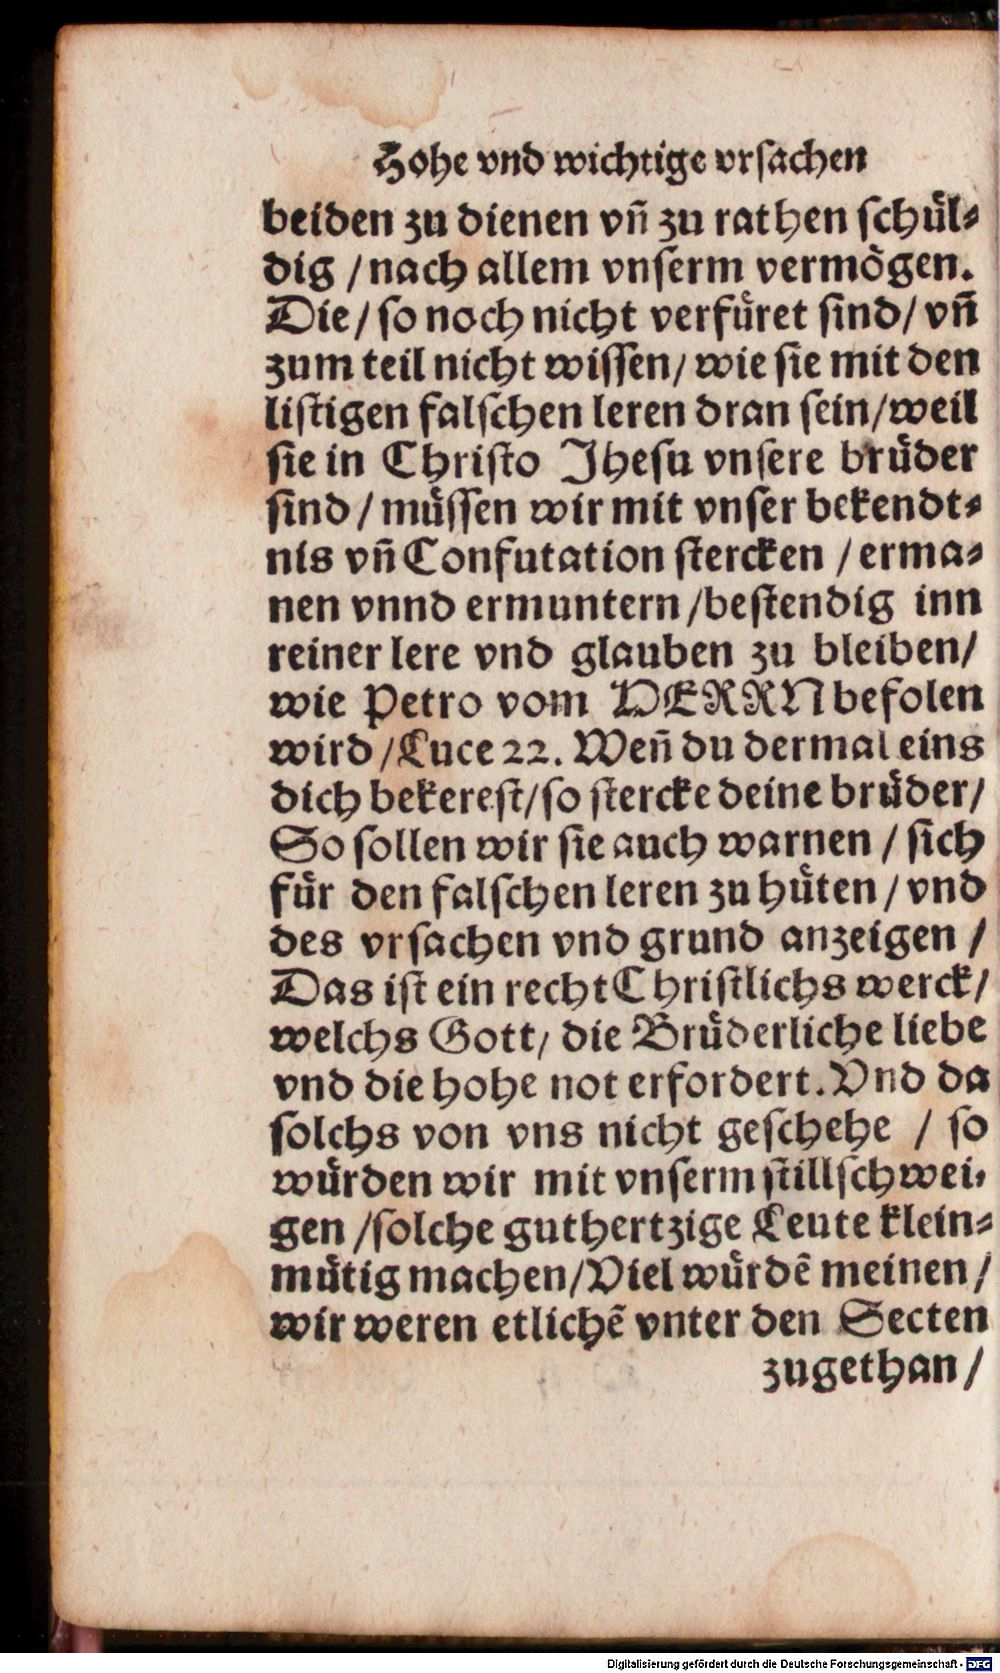 Hohe vnd wichtige vrſachen
beiden zu dienen vn̄ zu rathen ſchuͤl⸗
dig / nach allem vnſerm vermoͤgen.
Die / ſo noch nicht verfuͤret ſind / vn̄
zum teil nicht wiſſen / wie ſie mit den
liſtigen falſchen leren dran ſein / weil
ſie in Chriſto Jheſu vnſere bruͤder
ſind / muͤſſen wir mit vnſer bekendt⸗
nis vn̄ Confutation ſtercken / erma⸗
nen vnnd ermuntern / beſtendig inn
reiner lere vnd glauben zu bleiben /
wie Petro vom HERRN befolen
wird / Luce 22. Wen̄ du dermal eins
dich bekereſt / ſo ſtercke deine bruͤder /
So ſollen wir ſie auch warnen / ſich
fuͤr den falſchen leren zu huͤten / vnd
des vrſachen vnd grund anzeigen /
Das iſt ein recht Chriſtlichs werck /
welchs Gott / die Bruͤderliche liebe
vnd die hohe not erfordert. Vnd da
ſolchs von vns nicht geſchehe / ſo
wuͤrden wir mit vnſerm ſtillſchwei⸗
gen / ſolche guthertzige Leute klein⸗
muͤtig machen / Viel wuͤrdē meinen /
wir weren etlichē vnter den Secten
zugethan /
Digitalisierung gefördert durch die Deutsche Forschungsgemeinschaft - DFG